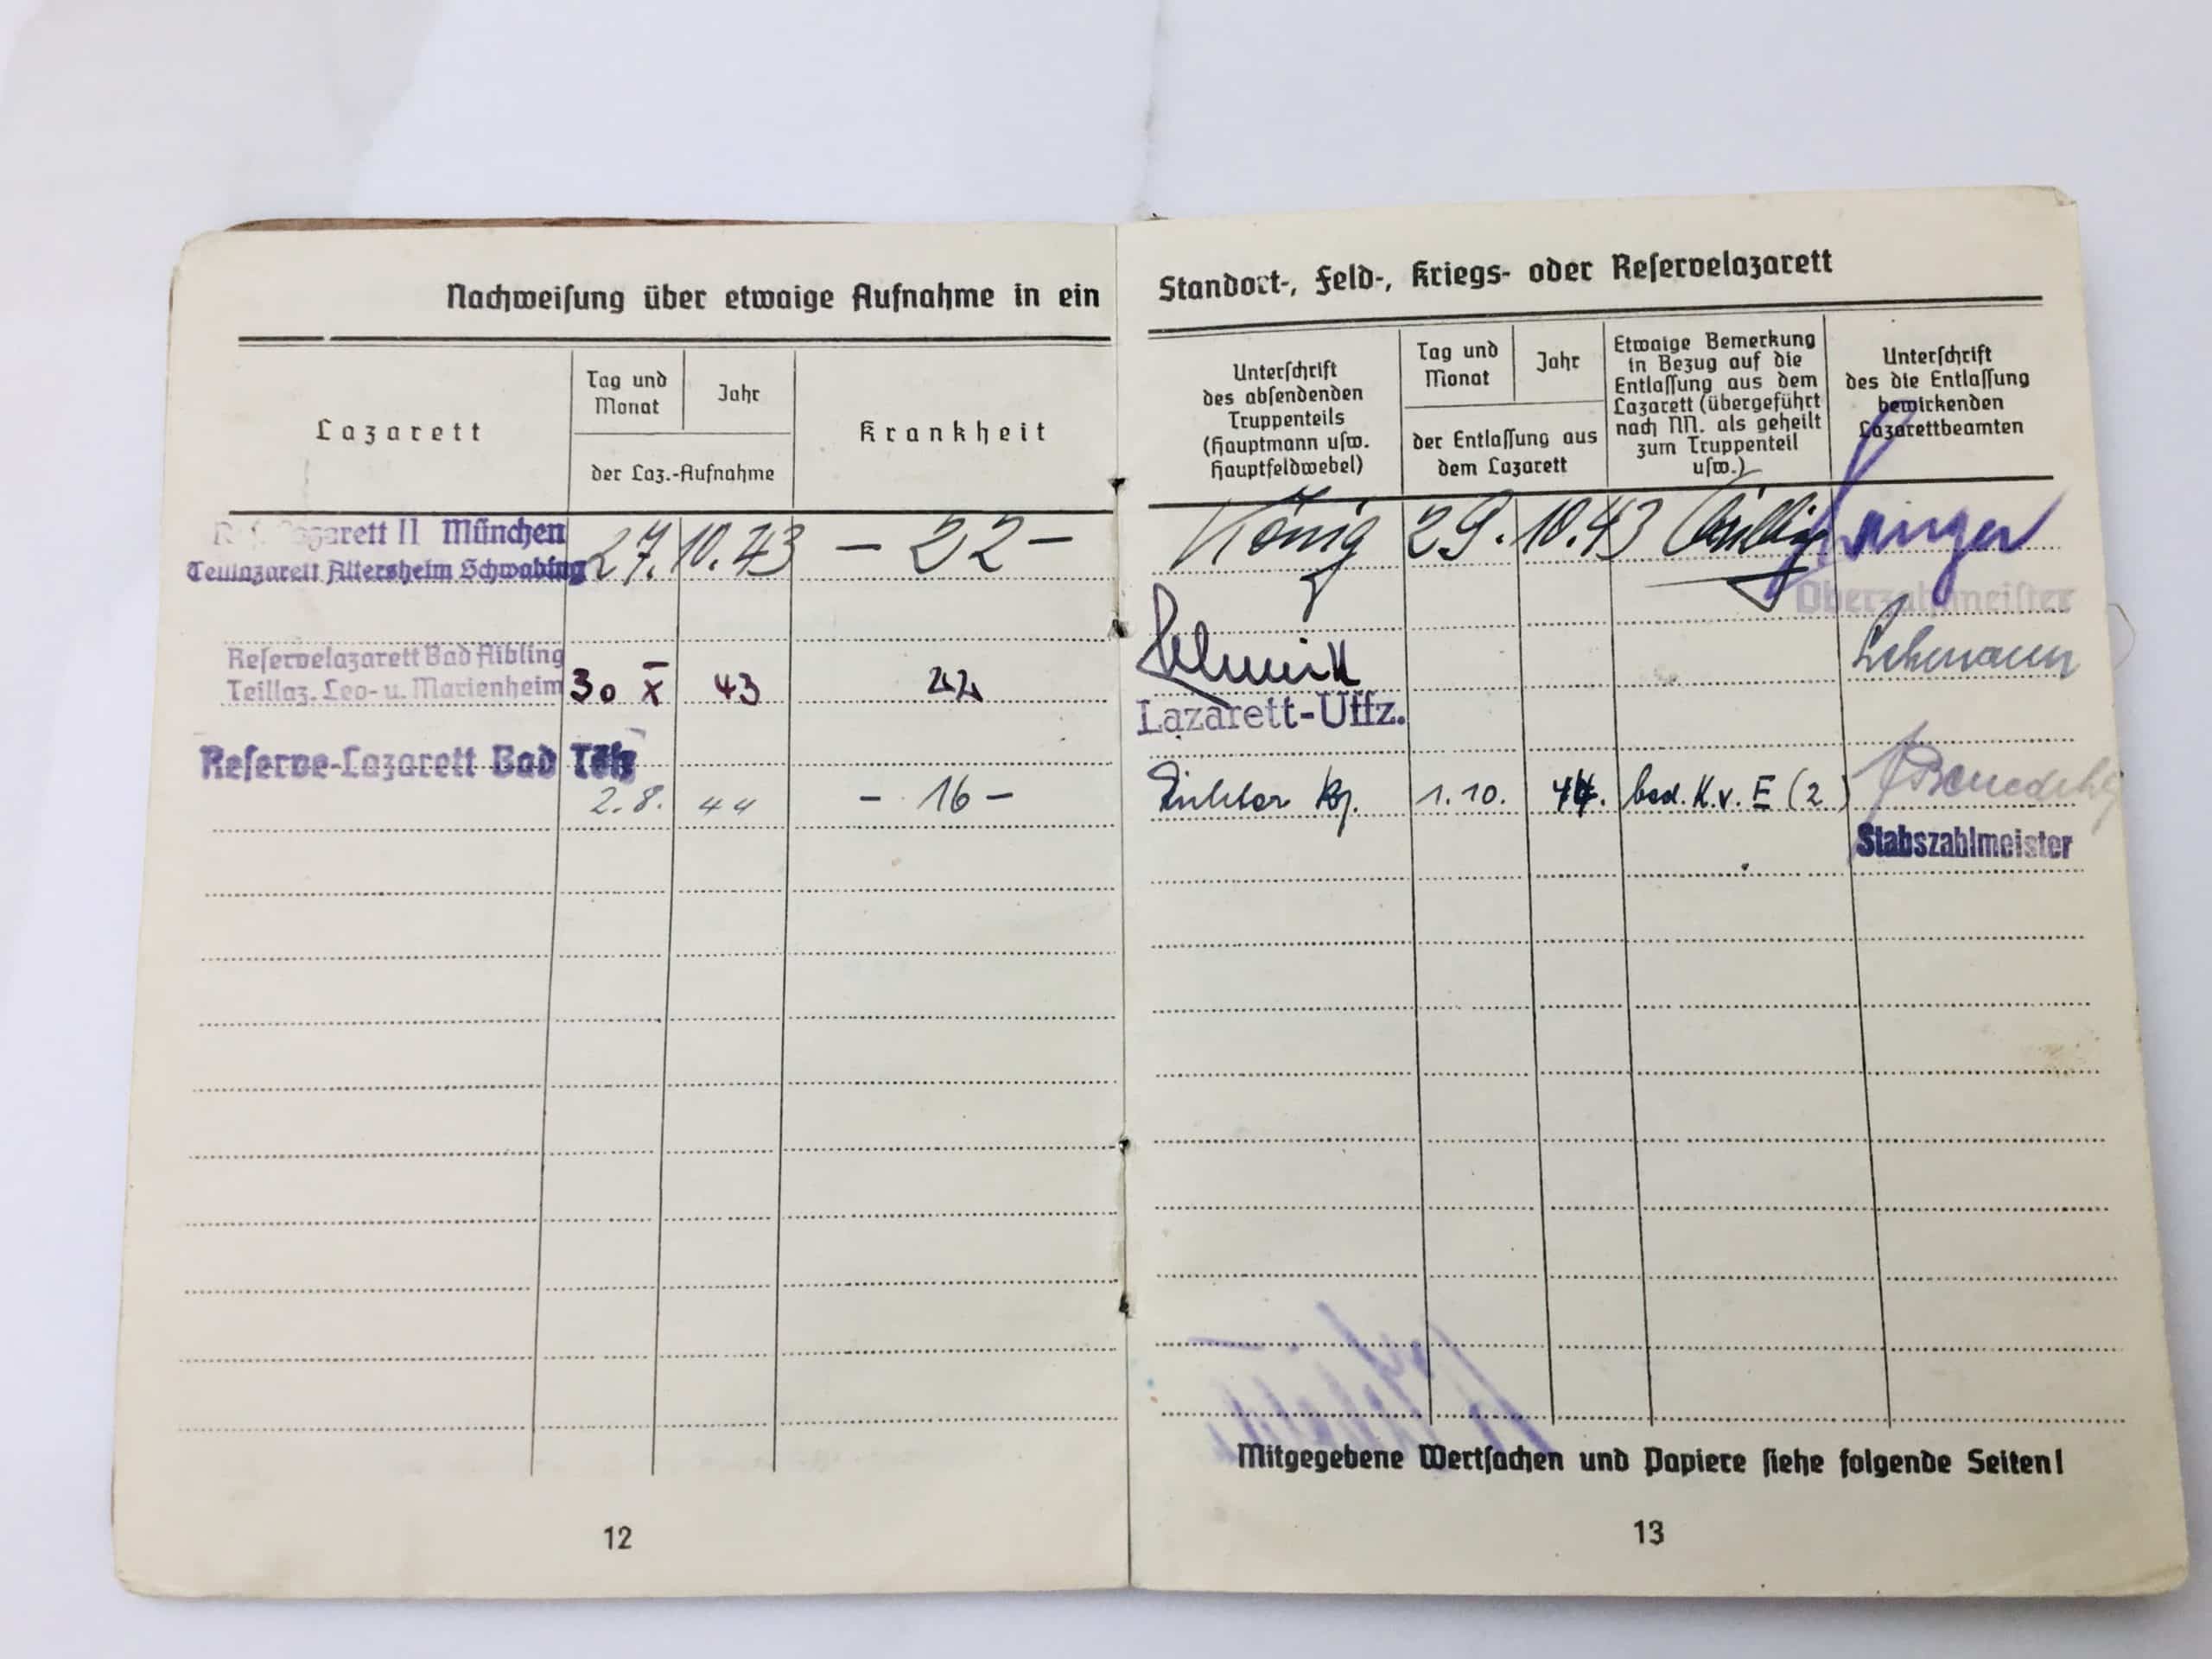 Nachweisung über etwaige Aufnahme in ein
Lazarett
Tag und
Monat
Jahr
der Laz.-Aufnahme
Krankheit
Lazarett II München
Teillazarett Altersheim Schwabing
27. 10. 43
– 22 –
Reservelazarett Bad Aibling
Teillaz. Leo- u. Marienheim
30 X 43
22
Reserve-Lazarett Bad Tölz
2. 8. 44
– 16 –
12
Standort-, Feld-, Kriegs- oder Reservelazarett
Unterschrift
des absendenden
Truppenteils
(Hauptmann usw.
Hauptfeldwebel)
Tag und
Monat
Jahr
der Entlassung aus
dem Lazarett
Etwaige Bemerkung
in Bezug auf die
Entlassung aus dem
Lazarett (übergeführt
nach NN. als geheilt
zum Truppenteil
usw.)
Unterschrift
des die Entlassung
bewirkenden
Lazarettbeamten
König 29. 10. 43
Oberzahlmeister
Lehmann
Lazarett-Uffz.
1. 10. 44. bed. K.v. E (2)
Stabszahlmeister
Mitgegebene Wertsachen und Papiere siehe folgende Seiten!
13